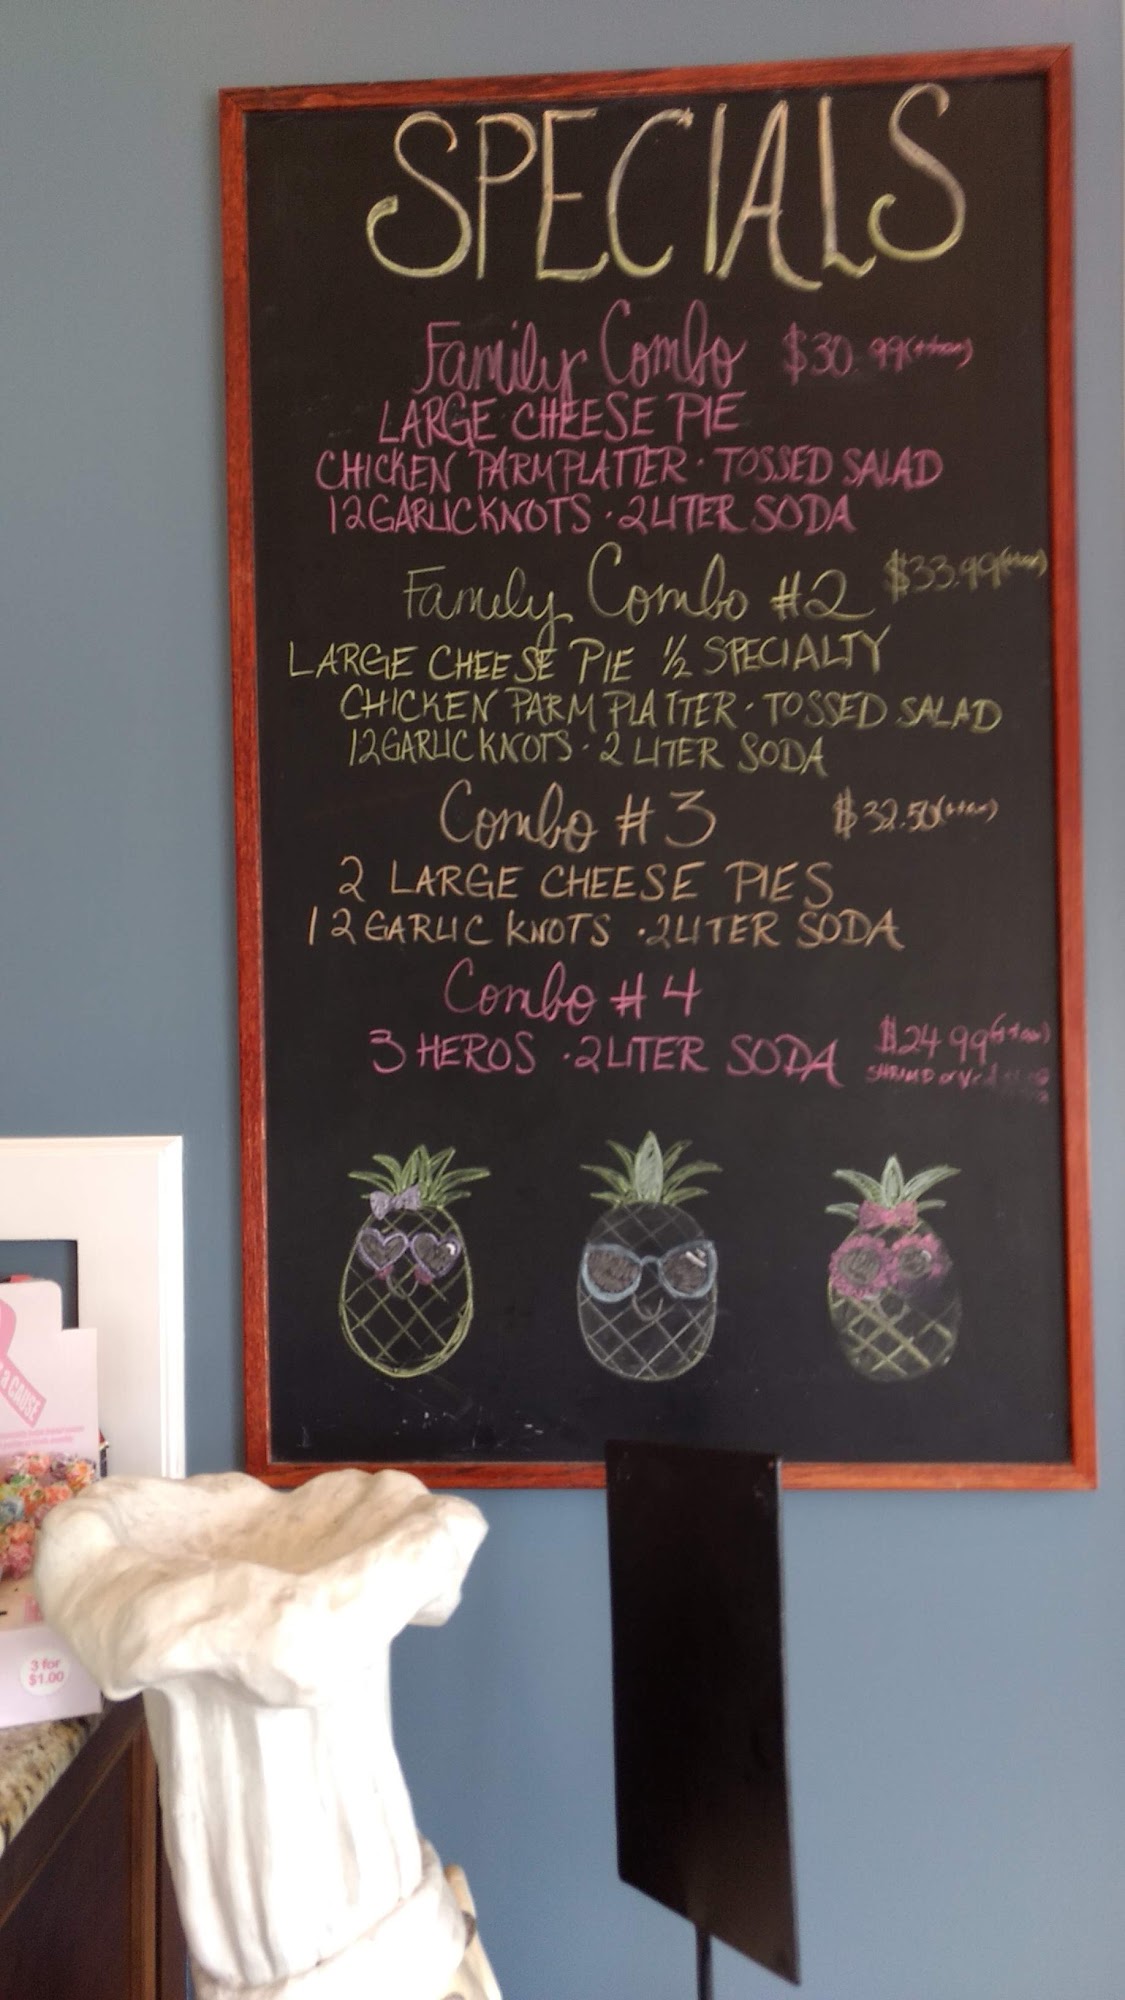 SPECIALS
Family Combo $30.99(+tax)
LARGE CHEESE PIE
CHICKEN PARM PLATTER · TOSSED SALAD
12 GARLIC KNOTS · 2 LITER SODA
Family Combo #2 $33.99(+tax)
LARGE CHEESE PIE ½ SPECIALTY
CHICKEN PARM PLATTER · TOSSED SALAD
12 GARLIC KNOTS · 2 LITER SODA
Combo #3 $32.50(+tax)
2 LARGE CHEESE PIES
12 GARLIC KNOTS · 2 LITER SODA
Combo #4
3 HEROS · 2 LITER SODA $24.99(+tax)
SHRIMP or
a CAUSE
3 for
$1.00